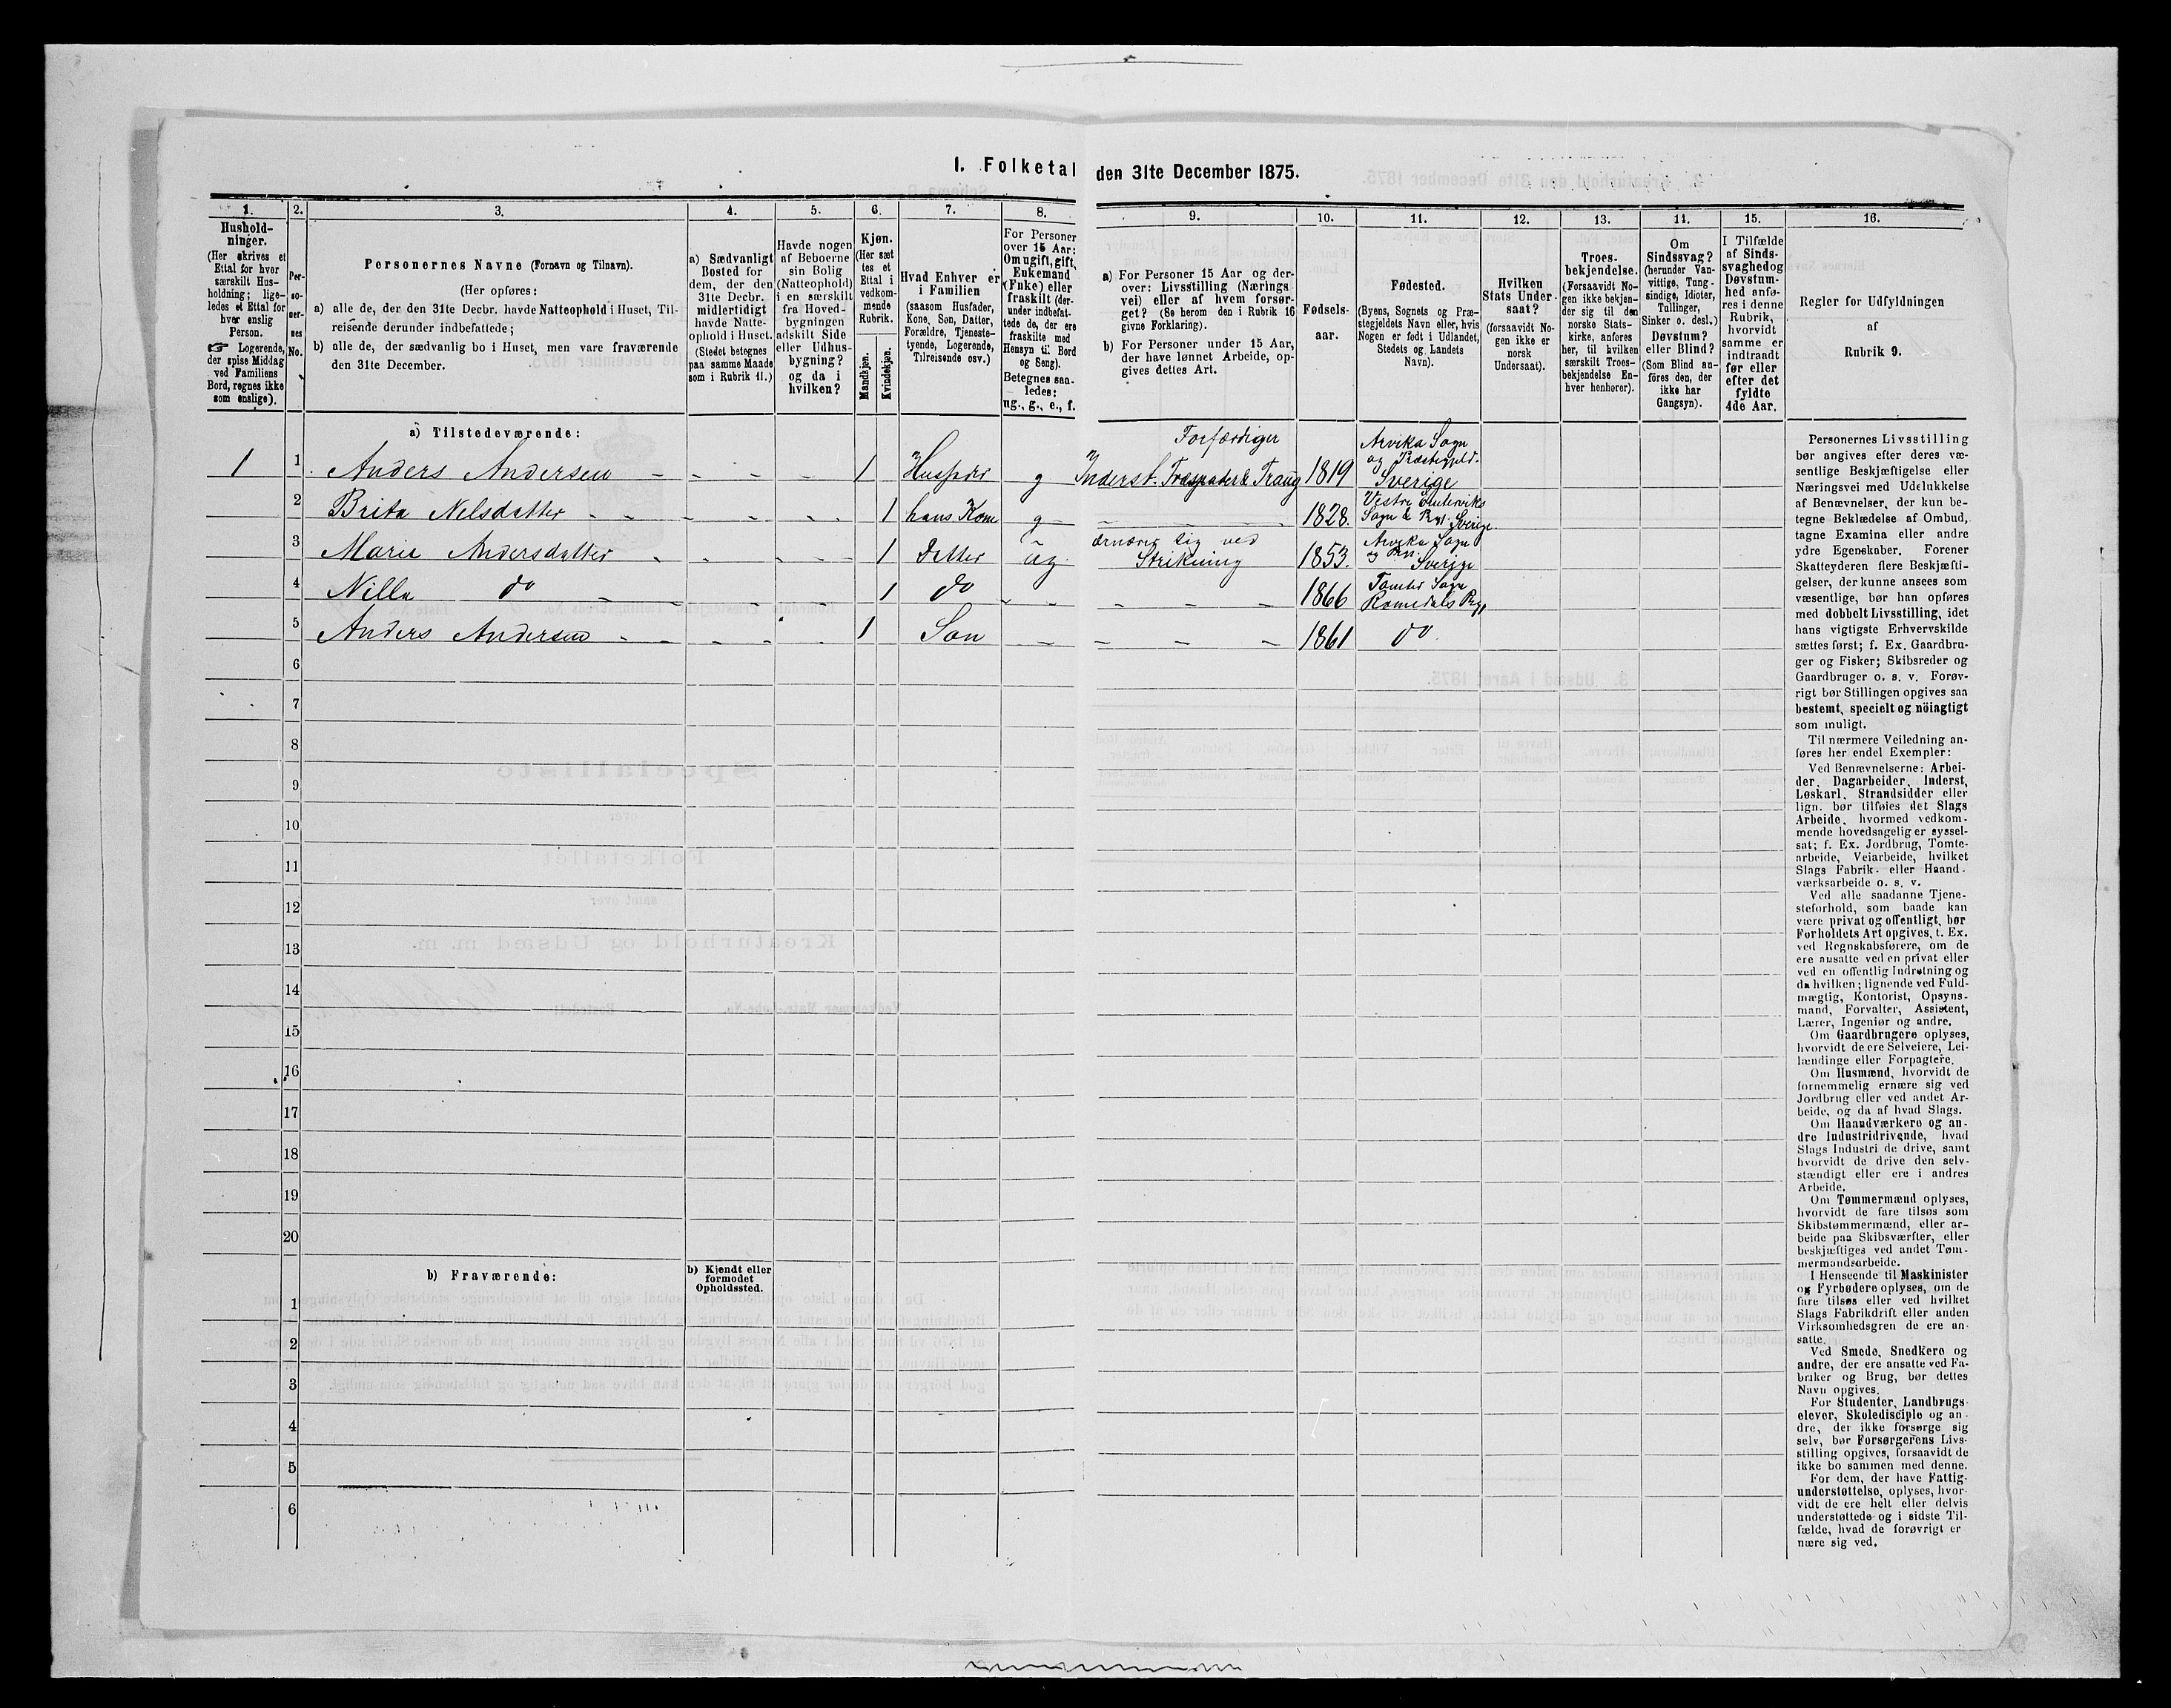 I. Folketal den 31te December 1875.
1.
Hushold-
ninger.
(Her skrives et
Ettal for hver
særskilt Hus-
holdning; lige-
ledes et Ettal for
hver enslig
Person.
☞ Logerende,
der spise Middag
ved Familiens
Bord, regnes ikke
som enslige).
2.
Per-
so-
ner-
nes
No.
3.
Personernes Navne (Fornavn og Tilnavn).
(Her opføres:
a) alle de, der den 31te Decbr. havde Natteophold i Huset, Til-
reisende derunder indbefattede;
b) alle de, der sædvanlig bo i Huset, men vare fraværende
den 31te December.
4.
a) Sædvanligt
Bosted for
dem, der den
31te Decbr.
midlertidigt
havde Natte-
ophold i Huset.
(Stedet betegnes
paa samme Maade
som i Rubrik 11.)
5.
Havde nogen
af Beboerne
sin Bolig
(Natteophold)
i en særskilt
fra Hoved-
bygningen
adskilt Side
eller Udhus-
bygning?
og da i
hvilken?
6.
Kjøn.
(Her sæt
tes et
Ettal i
vedkom-
mende
Rubrik.
Mandkjøn.
Kvindekjøn.
7.
Hvad Enhver er
i Familien
(saasom Husfader,
Kone, Søn, Datter,
Forældre, Tjeneste-
tyende, Logerende,
Tilreisende osv.)
8.
For Personer
over 15 Aar:
Om ugift, gift,
Enkemand
(Enke) eller
fraskilt (der-
under indbefat-
tede de, der ere
fraskilte med
Hensyn til Bord
og Seng).
Betegnes saa-
ledes:
ug., g., e., f.
9.
a) For Personer 15 Aar og der-
over: Livsstilling (Nærings
vei) eller af hvem forsør-
get? (Se herom den i Rubrik 16
givne Forklaring).
b) For Personer under 15 Aar,
der have lønnet Arbeide, op-
gives dettes Art.
10.
Fødsels-
aar.
11.
Fødested.
(Byens, Sognets og Præ-
stegjeldets Navn eller, hvis
Nogen er født i Udlandet,
Stedets og Landets
Navn).
12.
Hvilken
Stats Under-
saat?
(forsaavidt No-
gen ikke er
norsk
Undersaat).
13.
Troes-
bekjendelse.
(Forsaavidt No-
gen ikke bekjen-
der sig til den
norske Stats-
kirke, anføres
her, til hvilken
særskilt Troes-
bekjendelse En-
hver henhører).
14.
Om
Sindssvag?
(herunder Van-
vittige, Tung-
sindige, Idioter,
Tullinger,
Sinker o. desl.)
Døvstum?
eller Blind?
(Som Blind an-
føres den, der
ikke har
Gangsyn).
15.
I Tilfælde
af Sinds-
svaghed og
Døvstum-
hed anfø-
res i denne
Rubrik,
hvorvidt
samme er
indtraadt
før eller
efter det
fyldte
4de Aar.
16.
Regler for Udfyldningen
af
Rubrik 9.
a) Tilstedeværende:
1 1 Anders Andersen 1 Husfader g Inderst. Forfærdiger Træspader & Traug 1819 Arvika Sogn
og Præstegjeld.
Sverige
2 Brita Nelsdatter 1 hans Kone g 1828. Vestre
Sogn & Pgl. Sverige.
3 Marie Andersdatter 1 Datter ug. ernærer sig ved
Strikning 1853. Arvika Sogn
og Sverige
4 Nilla do 1 do 1866 Tomter Sogn
Romedals Pgl
5 Anders Andersen 1 Søn 1861 do.
6
7
8
9
10
11
12
13
14
15
16
17
18
19
20
b) Fraværende:
b) Kjendt eller
formodet
Opholdssted.
1
2
3
4
5
6
Personernes Livsstilling
bør angives efter deres væ-
sentlige Beskjæftigelse eller
Næringsvei med Udelukkelse
af Benævnelser, der kun be-
tegne Beklædelse af Ombud,
tagne Examina eller andre
ydre Egenskaber. Forener
Skatteyderen flere Beskjæfti-
gelser, der kunne ansees som
væsentlige, bør han opføres
med dobbelt Livsstilling, idet
hans vigtigste Erhvervskilde
sættes først; f. Ex. Gaardbru-
ger og Fisker; Skibsreder og
Gaardbruger o. s. v. Forøv-
rigt bør Stillingen opgives saa
bestemt, specielt og nöiagtigt
som muligt.
Til nærmere Veiledning an-
føres her endel Exempler:
Ved Benævnelserne: Arbei-
der, Dagarbeider, Inderst,
Løskarl, Strandsidder eller
lign. bør tilføies det Slags
Arbeide, hvormed vedkom-
mende hovedsagelig er syssel-
sat; f. Ex. Jordbrug, Tomte-
arbeide, Veiarbeide, hvilket
Slags Fabrik- eller Haand-
værksarbeide o. s. v.
Ved alle saadanne Tjene-
steforhold, som baade kan
være privat og offentligt, bør
Forholdets Art opgives, t. Ex.
ved Regnskabsførere, om de
ere ansatte ved en privat eller
ved en offentlig Indretning og
da hvilken; lignende ved Fuld-
mægtig, Kontorist, Opsyns-
mand, Forvalter, Assistent,
Lærer, Ingeniør og andre.
Om Gaardbrugere oplyses,
hvorvidt de ere Selveiere, Lei-
lændinge eller Forpagtere.
Om Husmænd, hvorvidt de
fornemmelig ernære sig ved
Jordbrug eller ved andet Ar-
beide, og da af hvad Slags.
Om Haandværkere og an-
dre Industridrivende, hvad
Slags Industri de drive, samt
hvorvidt de drive den selv-
stændigt eller ere i andres
Arbeide.
Om Tømmermænd oplyses,
hvorvidt de fare tilsøs som
Skibstømmermænd, eller ar-
beide paa Skibsværfter, eller
beskjæftiges ved andet Tøm-
mermandsarbeide.
I Henseende til Maskinister
og Fyrbødere oplyses, om de
fare tilsøs eller ved hvilket
Slags Fabrikdrift eller anden
Virksomhedsgren de ere an-
satte.
Ved Smede, Snedkere og
andre, der ere ansatte ved Fa-
briker og Brug, bør dettes
Navn opgives.
For Studenter, Landbrugs-
elever, Skoledisciple og an-
dre, der ikke forsørge sig
selv, bør Forsørgerens Livs-
stilling opgives, forsaavidt de
ikke bo sammen med denne.
For dem, der have Fattig-
understøttelse, oplyses, hvor-
vidt de ere helt eller delvis
understøttede og i sidste Til-
fælde, hvad de forøvrigt er
nære sig ved.